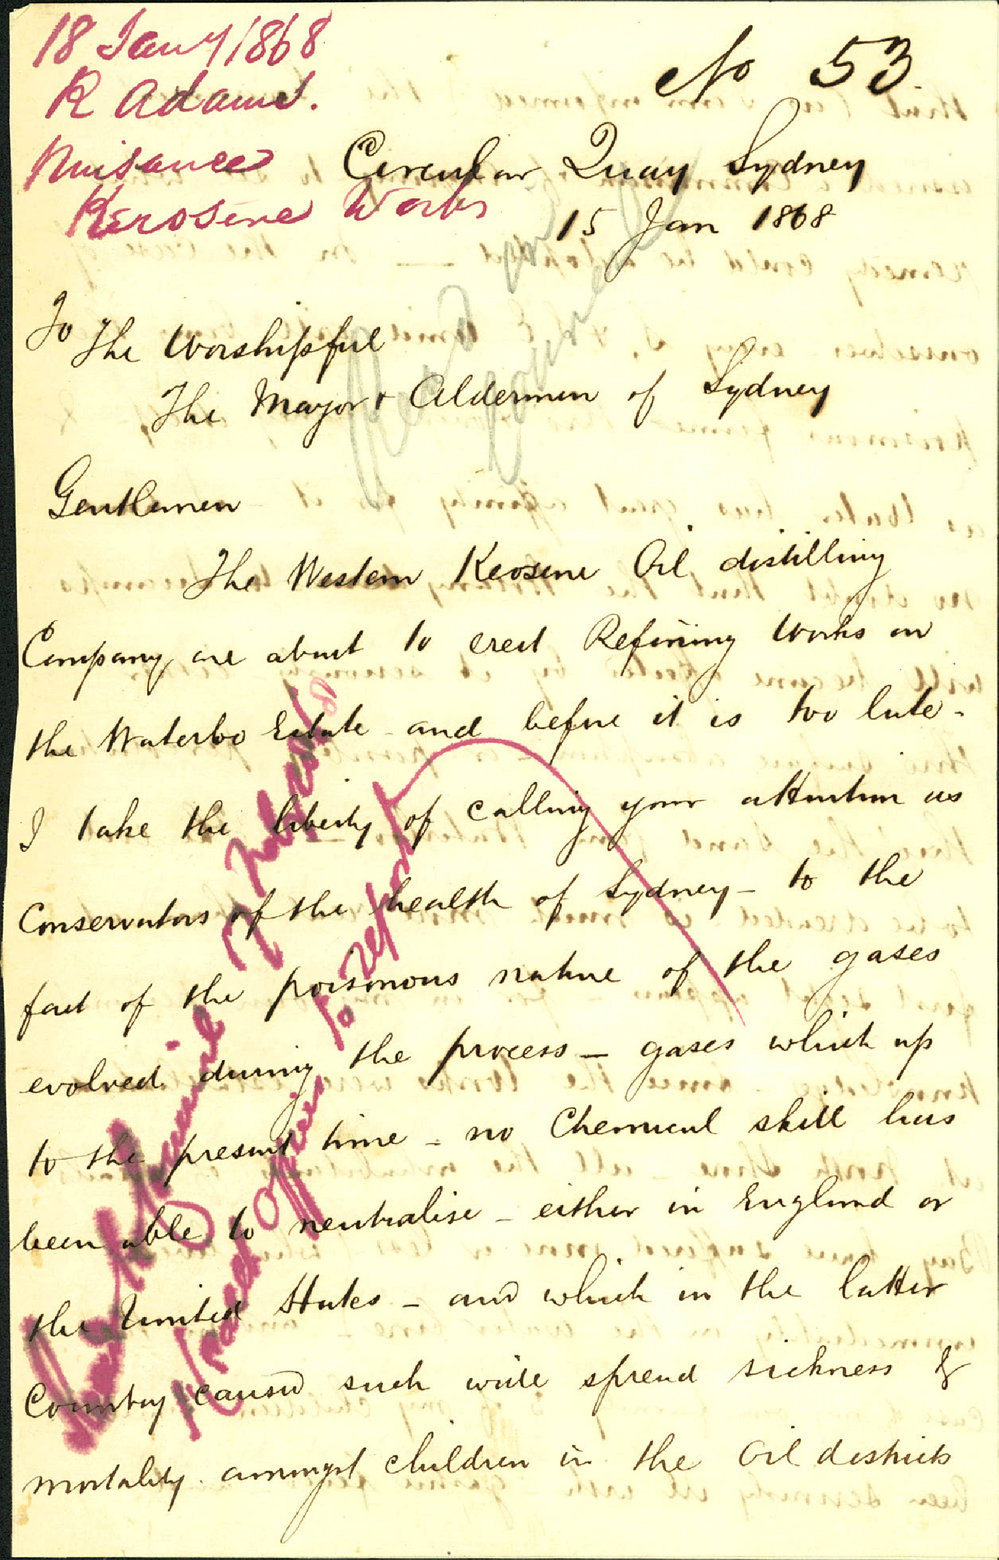 18 Jany 1868
R Adams.
Nuisance
Kerosene Works
No 53
Circular Quay Sydney
15 Jan 1868
To The Worshipful
The Mayor & Aldermen of Sydney
Gentlemen
The Western Kerosine Oil distilling
Company, are about to erect Refining Works on
the Waterloo Estate - and before it is too late -
I take the liberty of calling your attention as
Conservators of the health of Sydney - to the
fact of the poisonous nature of the gases
evolved during the process - gases which up
to the present time - no Chemical skill has
been able to neutralise - either in England or
the United States - and which in the latter
Country caused such wide spread sickness &
mortality amongst children in the Oil districts
Read in
Council
Health Officer to report